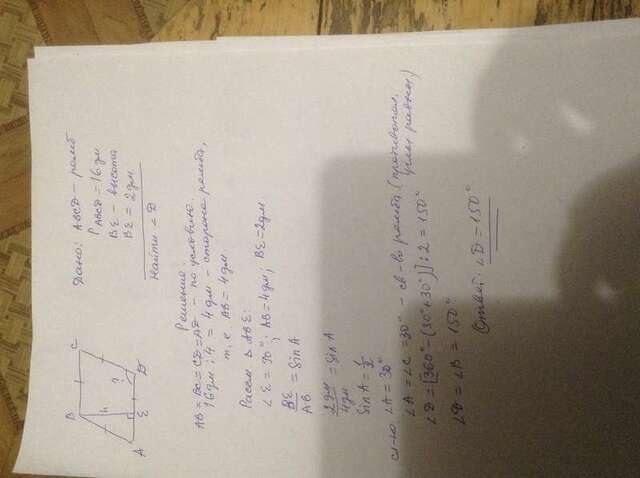 B C
4 ?
A E D
Дано: ABCD – ромб
P ABCD = 16 дм
BE – высота
BE = 2 дм
Найти ∠D
Решение:
AB = BC = CD = AD – по условию.
16 дм : 4 = 4 дм – сторона ромба,
т.е AB = 4 дм.
Рассм △ ABE:
∠E = 90°; AB = 4 дм; BE = 2 дм.
BE/AB = sin A
2 дм/4 дм = sin A
sin A = 1/2
сл-но ∠A = 30°
∠A = ∠C = 30° – св-во ромба (противопол. углы равны.)
∠D = [360° – (30° + 30°)] : 2 = 150°
∠D = ∠B = 150°
Ответ: ∠D = 150°